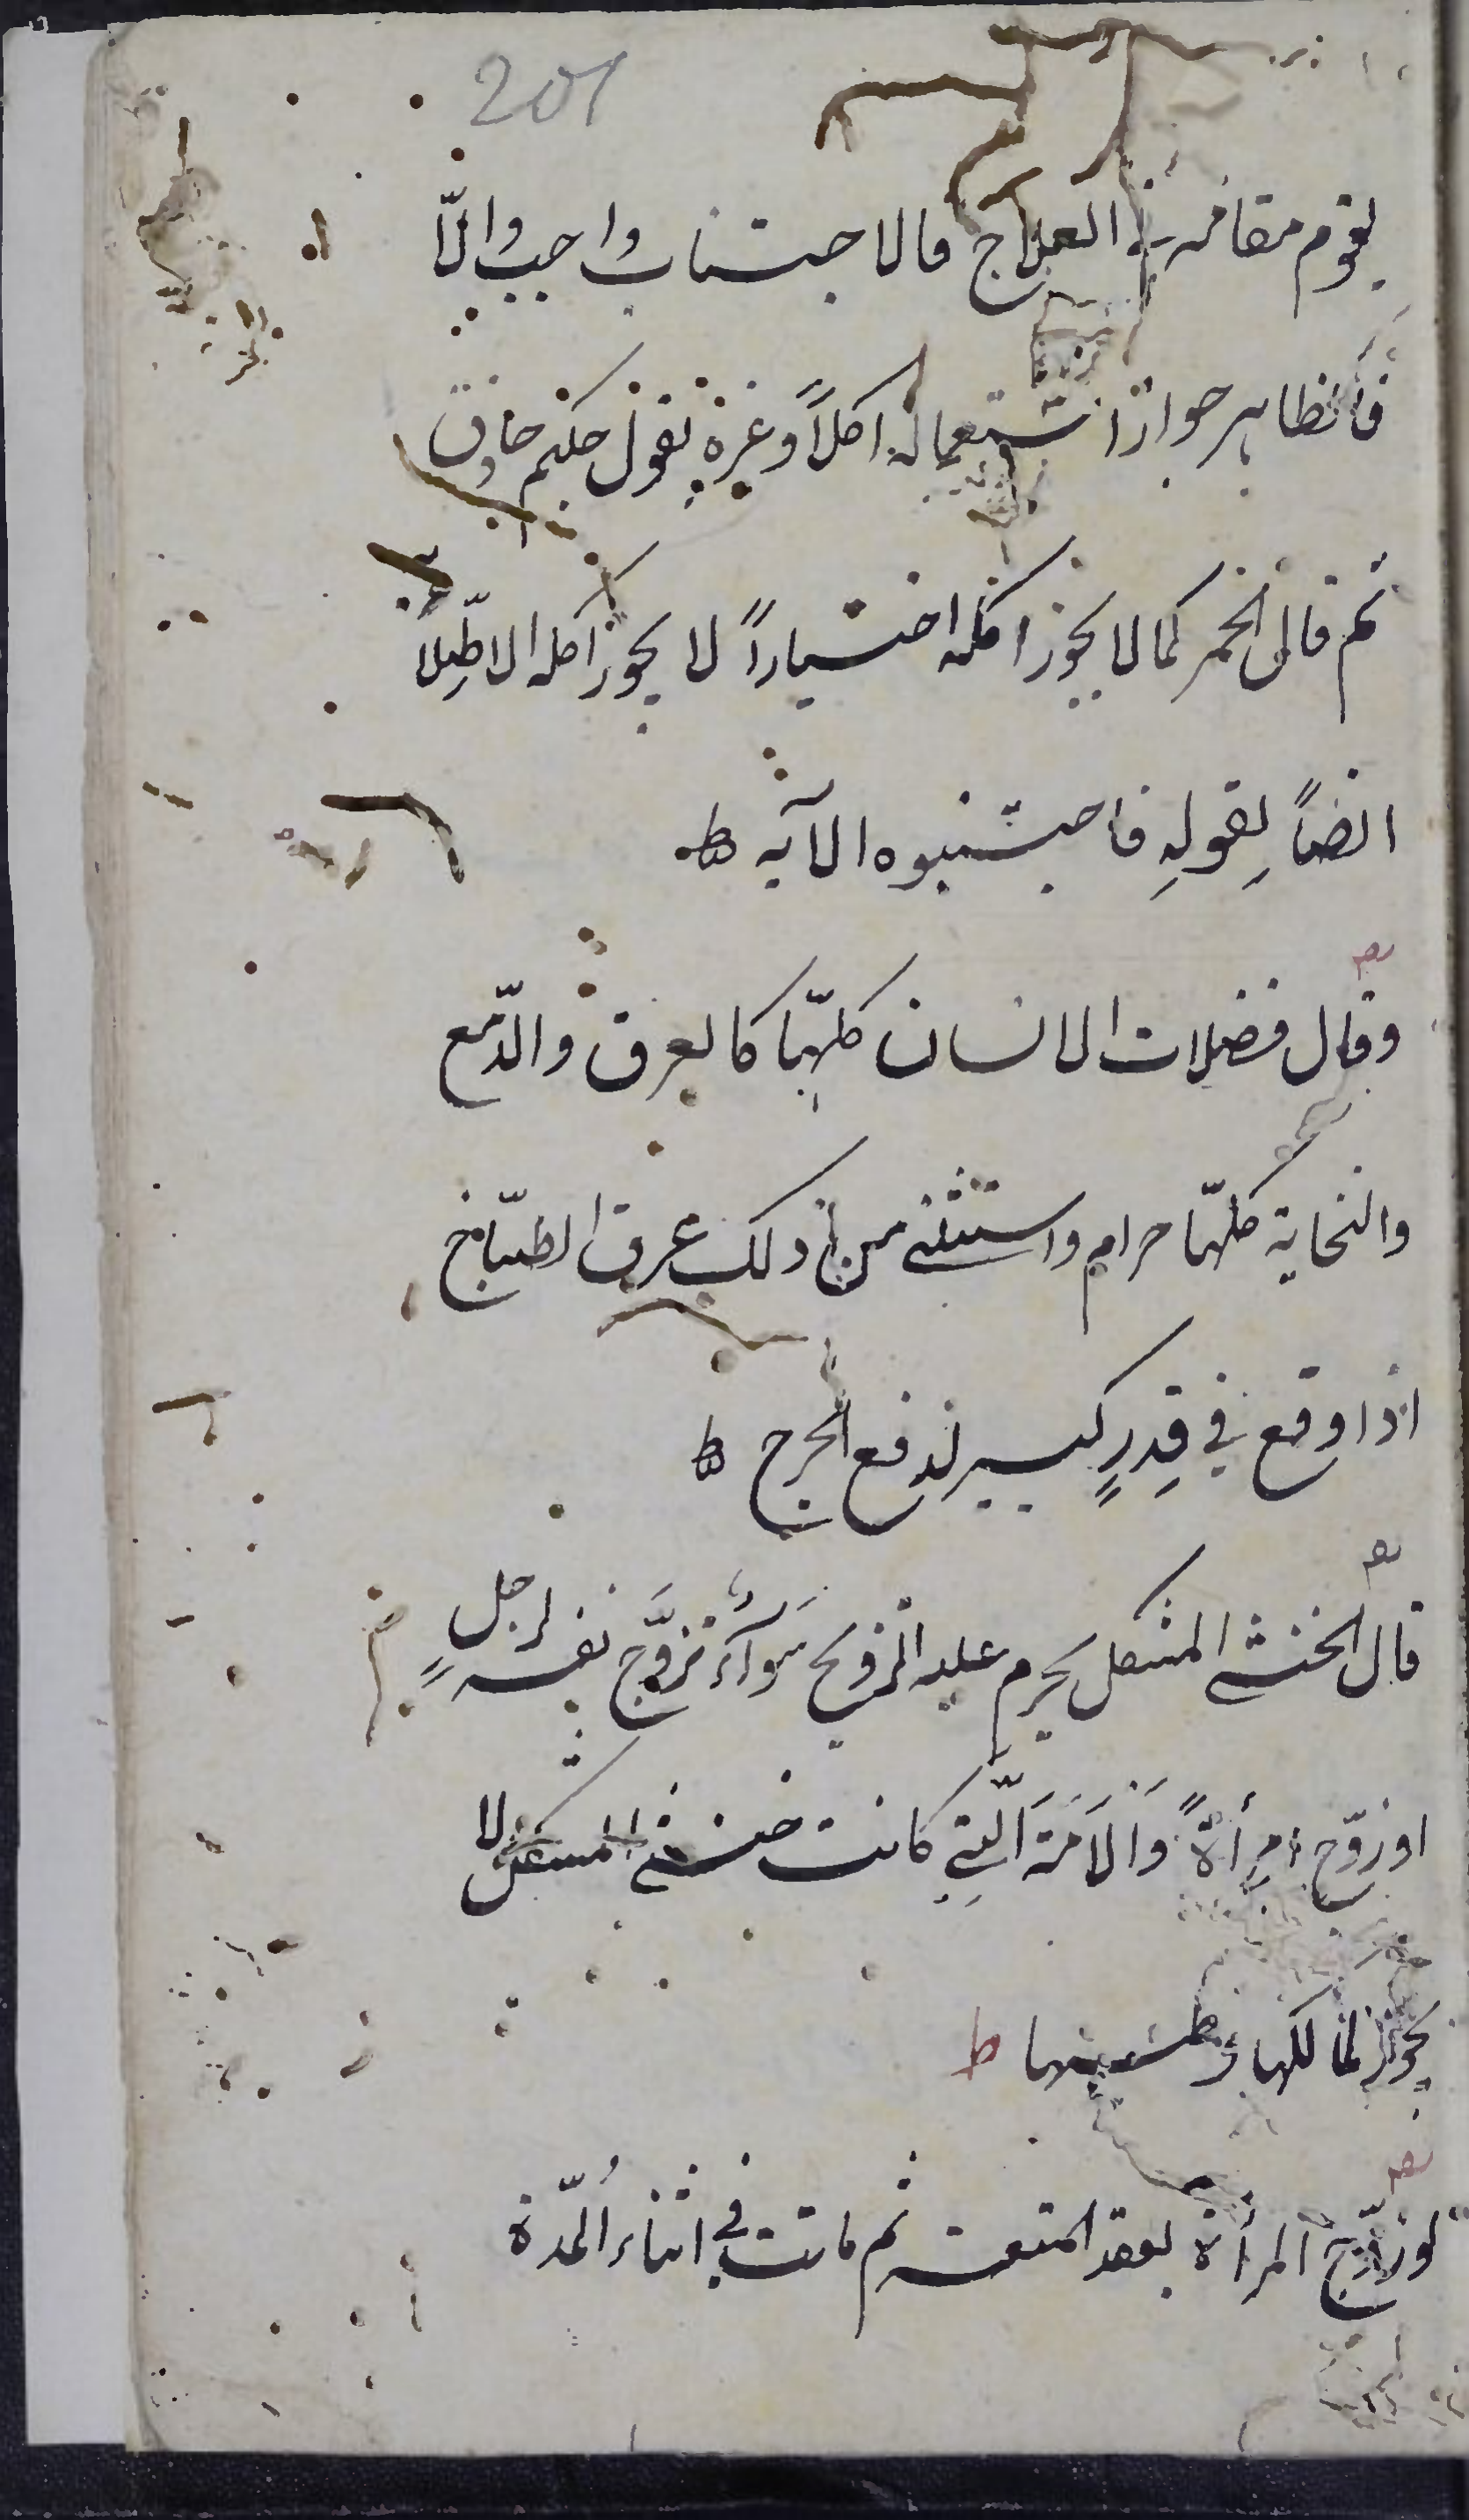 201
يقوم مقامه في العلاج فالاجتناب واجب والّا
فالظاهر جواز استعماله اكلاً وغيره بقول حكيم حاذق
ثم قال الخمر كما لا يجوز اكله اختياراً لا يجوز اكله الا طِلا
ايضاً لِقولِهِ فاجتنبوه الآيه ط
وقال فضلات الانسان كلّها كالعرق والدّمع
والنخاية كلّها حرام واستثنى من ذلك عرق الطبّاخ
اذا وقع في قِدرٍ كبير لدفع الحرج ط
قال الخنثى المشكل يحرم عليه التزويج سَوآءٌ تزوَّج نفسه لرجلٍ
او زوّج امرأةً وَالاَمَة الّتِي كانت خنثى المشكل لا
يجوز لمالكها وطئيها ط
لو زوّج المرأة بعقد المتعة ثم ماتت في اثناء المُدّة